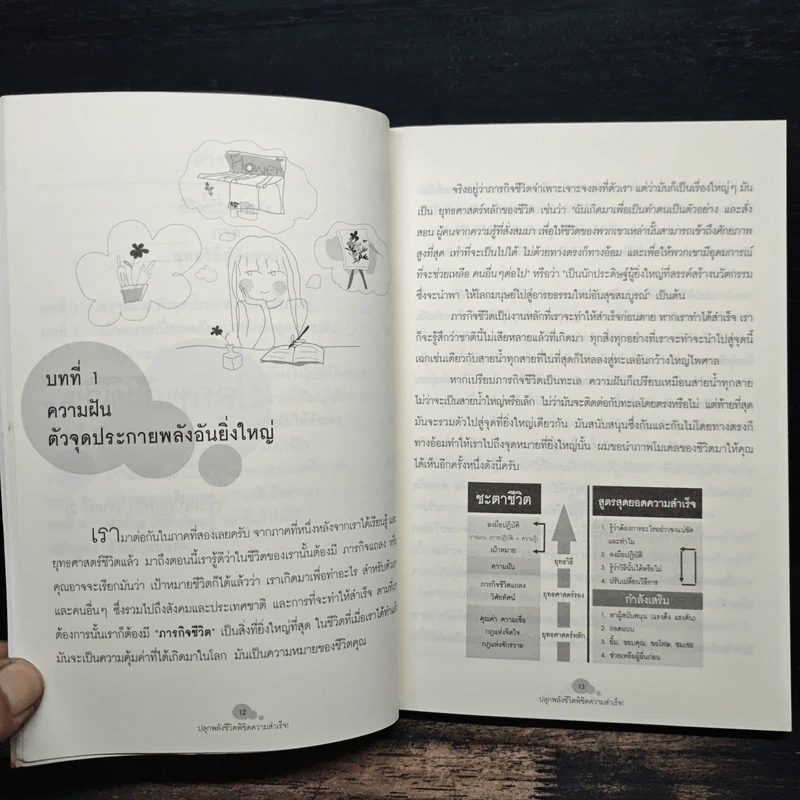 Flower
บทที่ 1
ความฝัน
ตัวจุดประกายพลังอันยิ่งใหญ่
เรามาต่อกันในภาคที่สองเลยครับ จากภาคที่หนึ่งหลังจากเราได้เรียนรู้
ยุทธศาสตร์ชีวิตแล้ว มาถึงตอนนี้เรารู้ดีว่าในชีวิตของเรานั้นต้องมี ภารกิจแถลง
คุณอาจจะเรียกมันว่า เป้าหมายชีวิตก็ได้แล้วว่า เราเกิดมาเพื่อทำอะไร สำหรับตัว
และคนอื่นๆ ซึ่งรวมไปถึงสังคมและประเทศชาติ และการที่จะทำให้สำเร็จ ตามที่
ต้องการนั้นเราก็ต้องมี "ภารกิจชีวิต" เป็นสิ่งที่ยิ่งใหญ่ที่สุด ในชีวิตที่เมื่อเราได้ทำ
มันจะเป็นความคุ้มค่าที่ได้เกิดมาในโลก มันเป็นความหมายของชีวิตคุณ
12
ปลุกพลังชีวิตพิชิตความสำเร็จ!
จริงอยู่ว่าภารกิจชีวิตจำเพาะเจาะจงลงที่ตัวเรา แต่ว่ามันก็เป็นเรื่องใหญ่ๆ มัน
เป็น ยุทธศาสตร์หลักของชีวิต เช่นว่า "ฉันเกิดมาเพื่อเป็นทำตนเป็นตัวอย่าง และสั่ง
สอน ผู้คนจากความรู้ที่สั่งสมมา เพื่อให้ชีวิตของพวกเขาเหล่านั้นสามารถเข้าถึงศักยภาพ
สูงที่สุด เท่าที่จะเป็นไปได้ ไม่ด้วยทางตรงก็ทางอ้อม และเพื่อให้พวกเขามีอุดมการณ์
ที่จะช่วยเหลือ คนอื่นๆต่อไป" หรือว่า "เป็นนักประดิษฐ์ผู้ยิ่งใหญ่ที่สรรค์สร้างนวัตกรรม
ซึ่งจะนำพา ให้โลกมนุษย์ไปสู่อารยธรรมใหม่อันสุขสมบูรณ์" เป็นต้น
ภารกิจชีวิตเป็นงานหลักที่เราจะทำให้สำเร็จก่อนตาย หากเราทำได้สำเร็จ เรา
ก็จะรู้สึกว่าชาตินี้ไม่เสียหลายแล้วที่เกิดมา ทุกสิ่งทุกอย่างที่เราจะทำจะนำไปสู่จุดนี้
เฉกเช่นเดียวกับสายน้ำทุกสายที่ในที่สุดก็ไหลลงสู่ทะเลอันกว้างใหญ่ไพศาล
หากเปรียบภารกิจชีวิตเป็นทะเล ความฝันก็เปรียบเหมือนสายน้ำทุกสาย
ไม่ว่าจะเป็นสายน้ำใหญ่หรือเล็ก ไม่ว่ามันจะติดต่อกับทะเลโดยตรงหรือไม่ แต่ท้ายที่สุด
มันจะรวมตัวไปสู่จุดที่ยิ่งใหญ่เดียวกัน มันสนับสนุนซึ่งกันและกันไม่โดยทางตรงก็
ทางอ้อมทำให้เราไปถึงจุดหมายที่ยิ่งใหญ่นั้น ผมขอนำภาพโมเดลของชีวิตมาให้คุณ
ได้เห็นอีกครั้งหนึ่งดังนี้ครับ
ชะตาชีวิต
ลงมือปฏิบัติ
เป้าหมาย
ความฝัน
ภารกิจชีวิตแถลง
วิสัยทัศน์
คุณค่า ความเชื่อ
กฎแห่งจิตใจ
กฎแห่งจักรวาล
ยุทธวิธี
ยุทธศาสตร์รอง
ยุทธศาสตร์หลัก
สูตรสุดยอดความสำเร็จ
1. รู้ว่าต้องการอะไรอย่างชัดแจ้ง
และทำไม
2. ลงมือปฏิบัติ
3. รู้ว่าวิธีนั้นได้หรือไม่
4. ปรับเปลี่ยนวิธีการ
กำลังเสริม
1. หาผู้สนับสนุน (แรงดึง แรงดัน)
2. ถอดแบบ
3. ยิ้ม ขอบคุณ ขอโทษ ชมเชย
4. ช่วยเหลือผู้อื่นก่อน
13
ปลุกพลังชีวิตพิชิตความสำเร็จ!